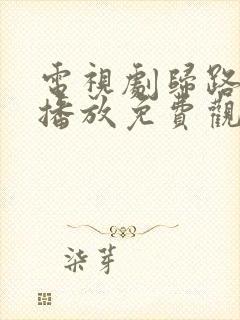 電視劇歸路
播放免費觀
柒芽